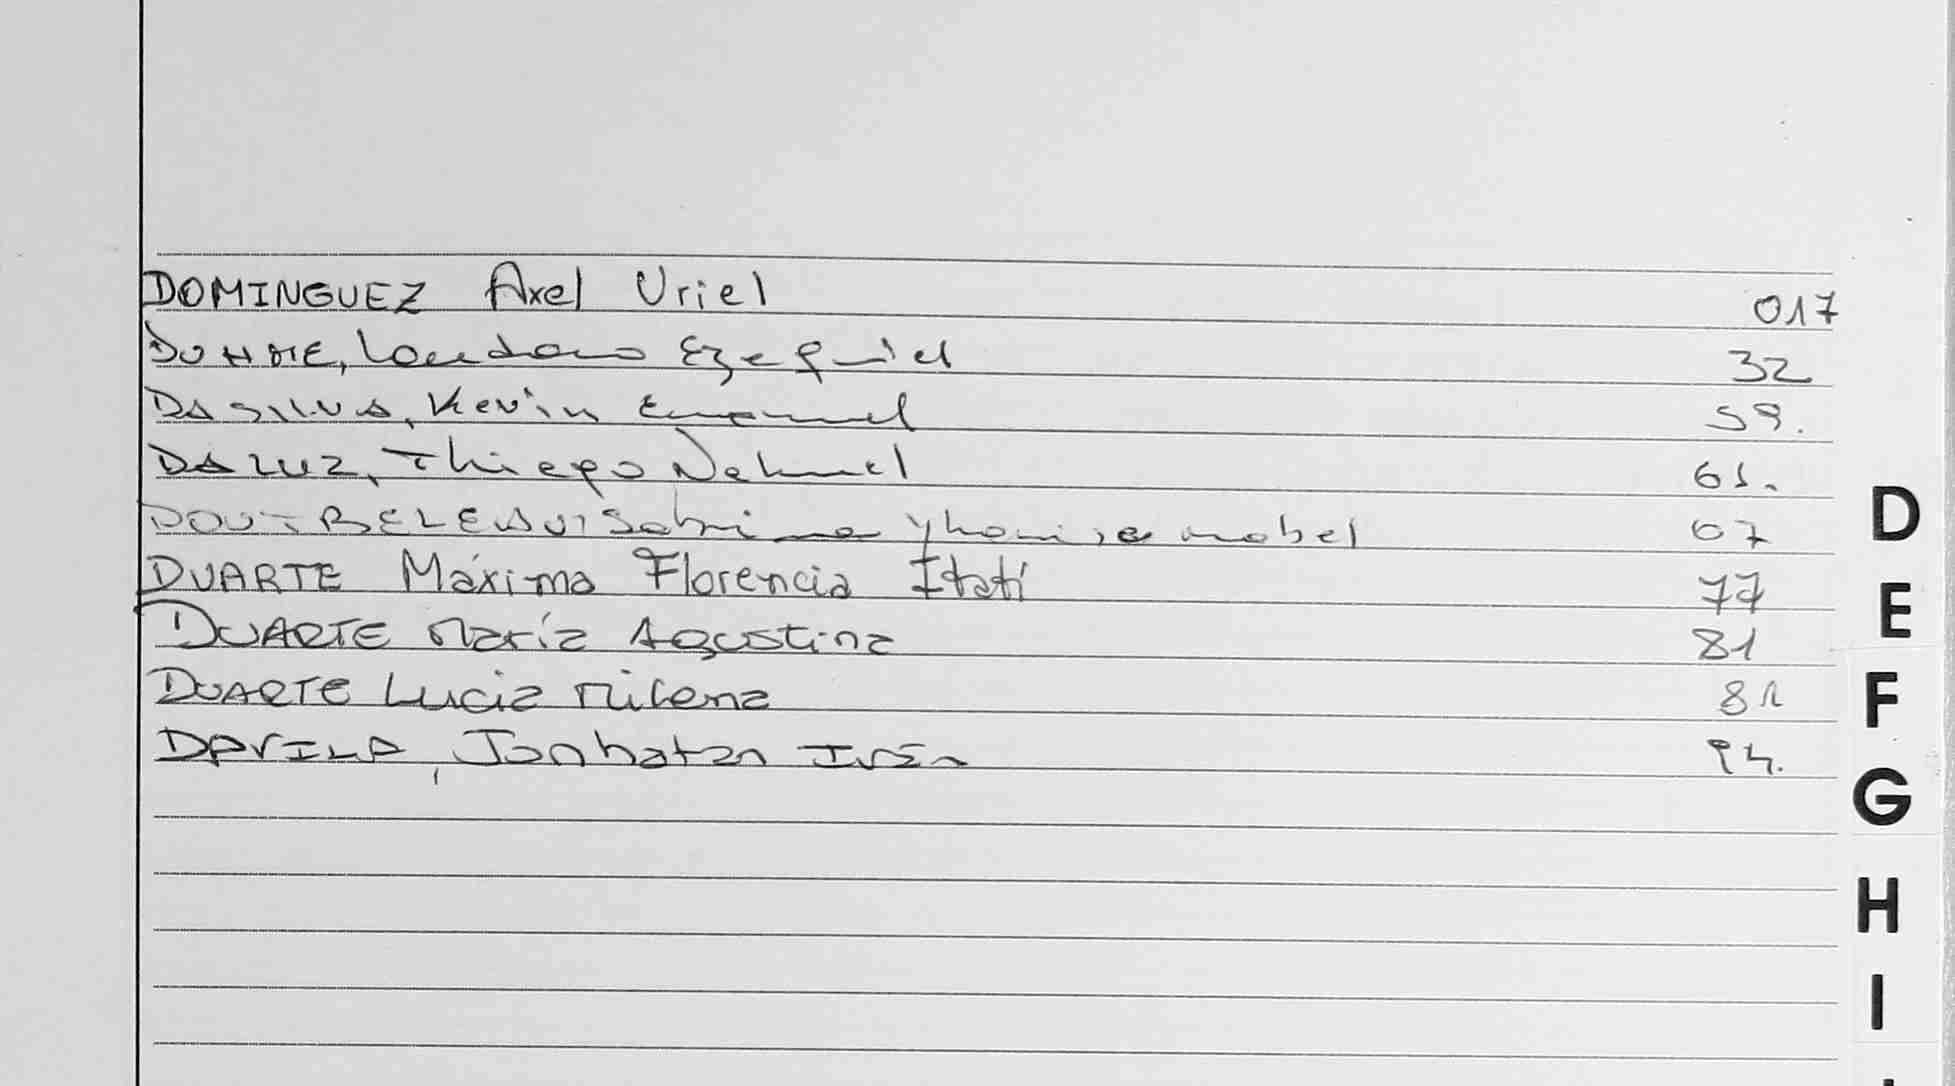 DOMINGUEZ Axel Uriel 017
Ezequiel 32
DASILVA, Kevin Emanuel 59.
DA LUZ, Thiago Nahuel 61.
Sabrina mabel 67
DUARTE Máxima Florencia Itatí 77
DUARTE María Agustina 81
DUARTE Lucia Milena 81
DAVILA, Jonhatan Iván 94.
D
E
F
G
H
I